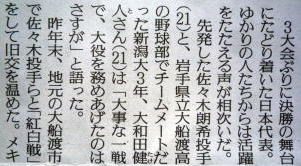 ３大会ぶりに決勝の舞
にたどり着いた日本代表。
ゆかりの人たちからは活躍
をたたえる声が相次いだ。
先発した佐々木朗希投手
(21)と、岩手県立大船渡高
の野球部でチームメートだ
った新潟大３年、大和田健
人さん(21)は「大事な一戦
で、大役を務めあげたのは
さすが」と語った。
昨年末、地元の大船渡市
で佐々木投手らと「紅白戦」
をして旧交を温めた。メキ